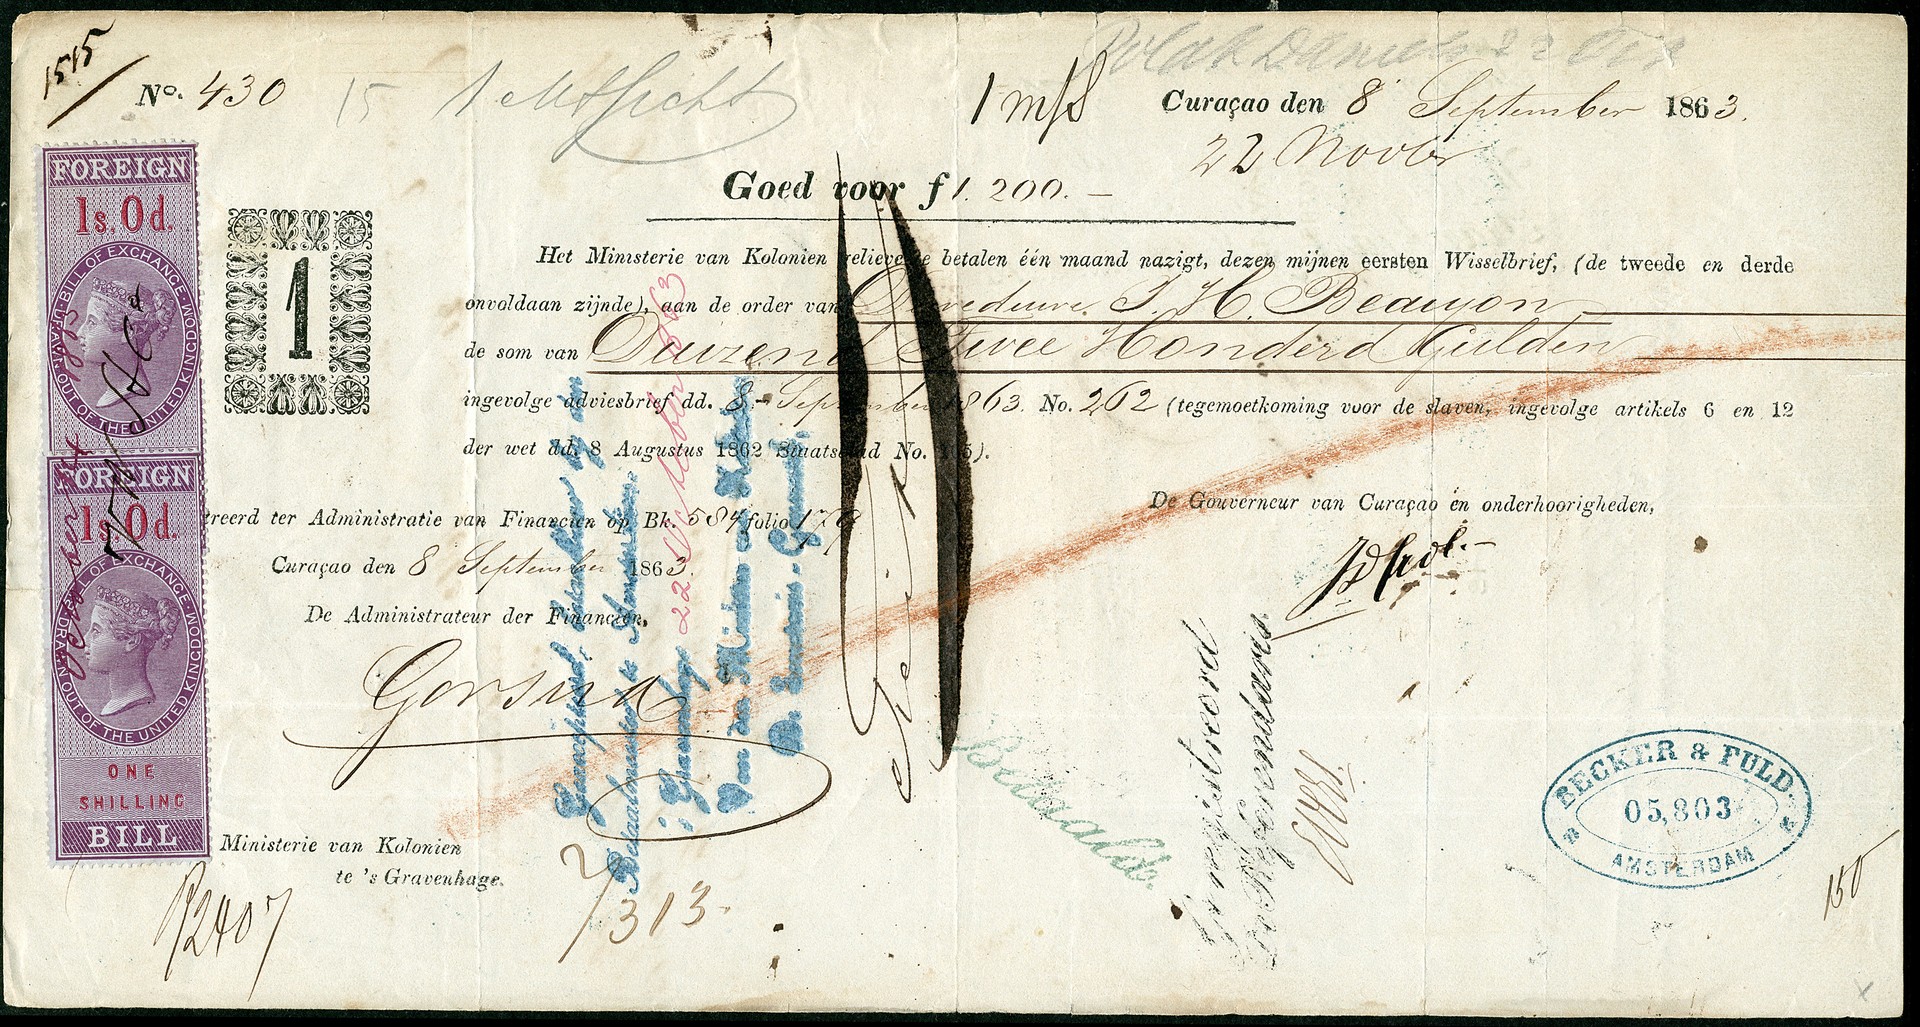 1515
No. 430
15
1 m/d
Curaçao den 8 September 1863.
22 Novbr
Goed voor f 1.200.-
1
Het Ministerie van Kolonien gelieve te betalen één maand nazigt, dezen mijnen eersten Wisselbrief, (de tweede en derde
onvoldaan zijnde), aan de order van De weduwe J. H. Beaujon
de som van Duizend Twee Honderd Gulden
ingevolge adviesbrief dd. 8 September 1863. No. 262 (tegemoetkoming voor de slaven, ingevolge artikels 6 en 12
der wet dd. 8 Augustus 1862 Staatsblad No. 165).
De Gouverneur van Curaçao en onderhoorigheden,
treerd ter Administratie van Financien op Bk. 584 folio 179
Curaçao den 8 September 1863.
De Administrateur der Financien,
Gorsira
Ministerie van Kolonien
te 's Gravenhage.
R2407
7313.
FOREIGN
1s. 0d.
BILL OF EXCHANGE
DRAWN OUT OF THE UNITED KINGDOM
FOREIGN
1s. 0d.
BILL OF EXCHANGE
DRAWN OUT OF THE UNITED KINGDOM
ONE
SHILLING
BILL
October
betaalbaar
Betaalmeester te Amsterdam
's Gravenhage 22 October 1863
Van den Minister van Kolonien
De Secretaris-Generaal
Betaald.
Geregistreerd
De Referendaris
BECKER & FULD.
05,803
AMSTERDAM
150